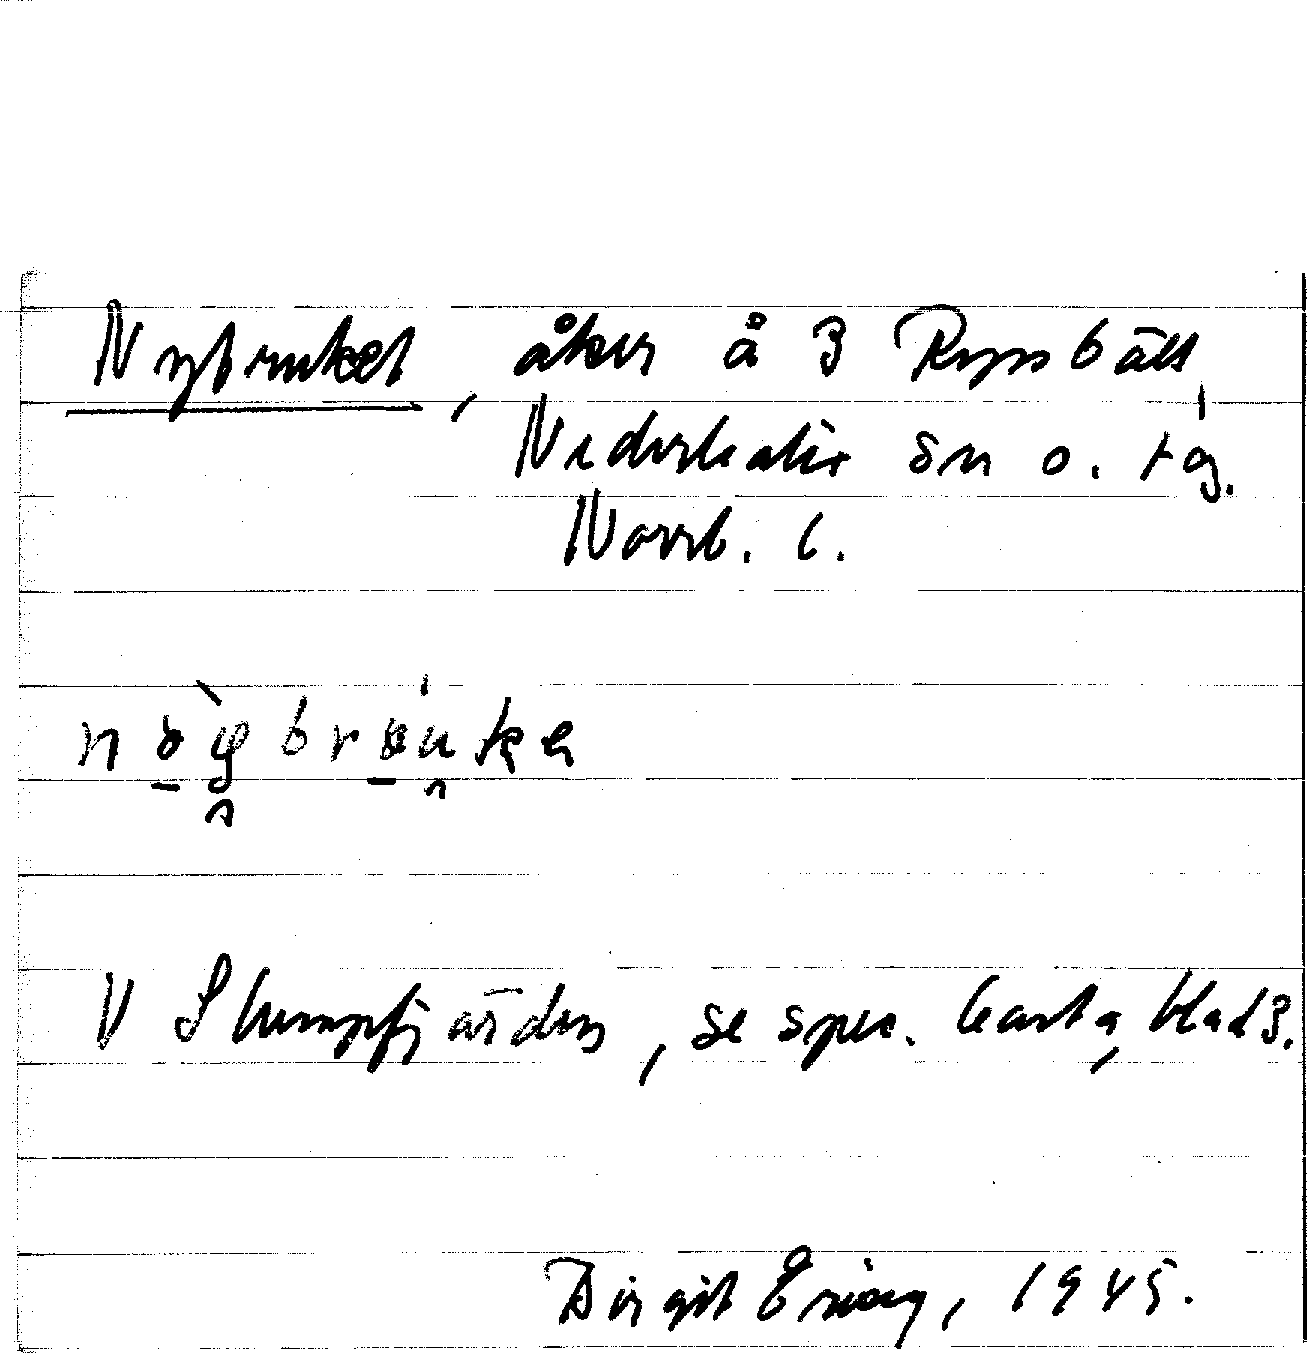 Nybruket, åker å 3 Ryssbält,
Nederkalix sn o. tg.
Norrb. l.
V Stumpfjärden, se spec. karta, blad 3.
Birgit Ericy, 1945.